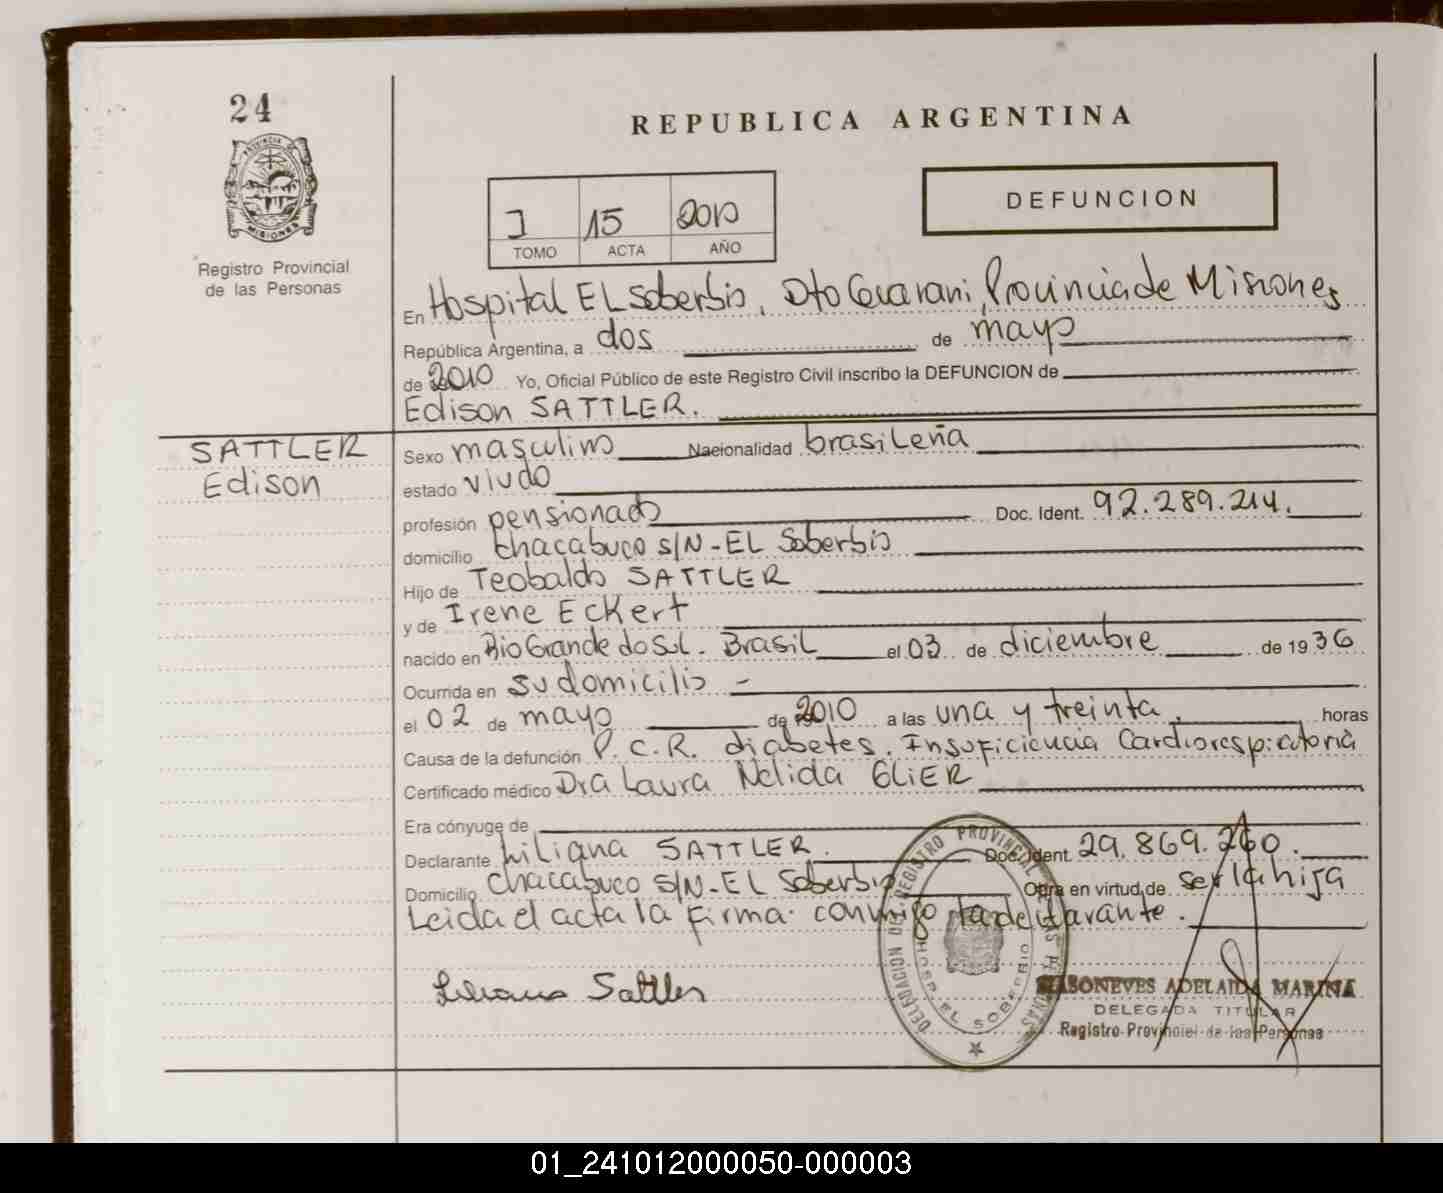 24
REPUBLICA ARGENTINA
PROVINCIA DE
MISIONES
Registro Provincial
de las Personas
I 15 2010
TOMO ACTA AÑO
DEFUNCION
En Hospital EL Soberbio, Dto Guarani, Provincia de Misiones
República Argentina, a dos de mayo
de 2010 Yo, Oficial Público de este Registro Civil inscribo la DEFUNCION de
Edison SATTLER.
SATTLER
Edison
Sexo masculino Nacionalidad brasileña
estado viudo
profesión pensionado Doc. Ident. 92.289.214.
domicilio Chacabuco S/N - EL Soberbio
Hijo de Teobaldo SATTLER
y de Irene Eckert
nacido en Rio Grande do Sul. Brasil el 03 de diciembre de 1936
Ocurrida en su domicilio -
el 02 de mayo de 2010 a las una y treinta, horas
Causa de la defunción P.C.R. diabetes. Insuficiencia Cardiorespiratoria
Certificado médico Dra Laura Nelida GLIER
Era cónyuge de
Declarante Liliana SATTLER. Doc. Ident. 29.869.260.
Domicilio Chacabuco S/N - EL Soberbio Obra en virtud de ser la hija
Leida el acta la firma conmigo la declarante.
Liliana Sattler
DELEGACION DE REGISTRO PROVINCIAL DE LAS PERSONAS
HOSP. EL SOBERBIO
MASONEVES ADELAIDA MARINA
DELEGADA TITULAR
Registro Provincial de las Personas
01_241012000050-000003